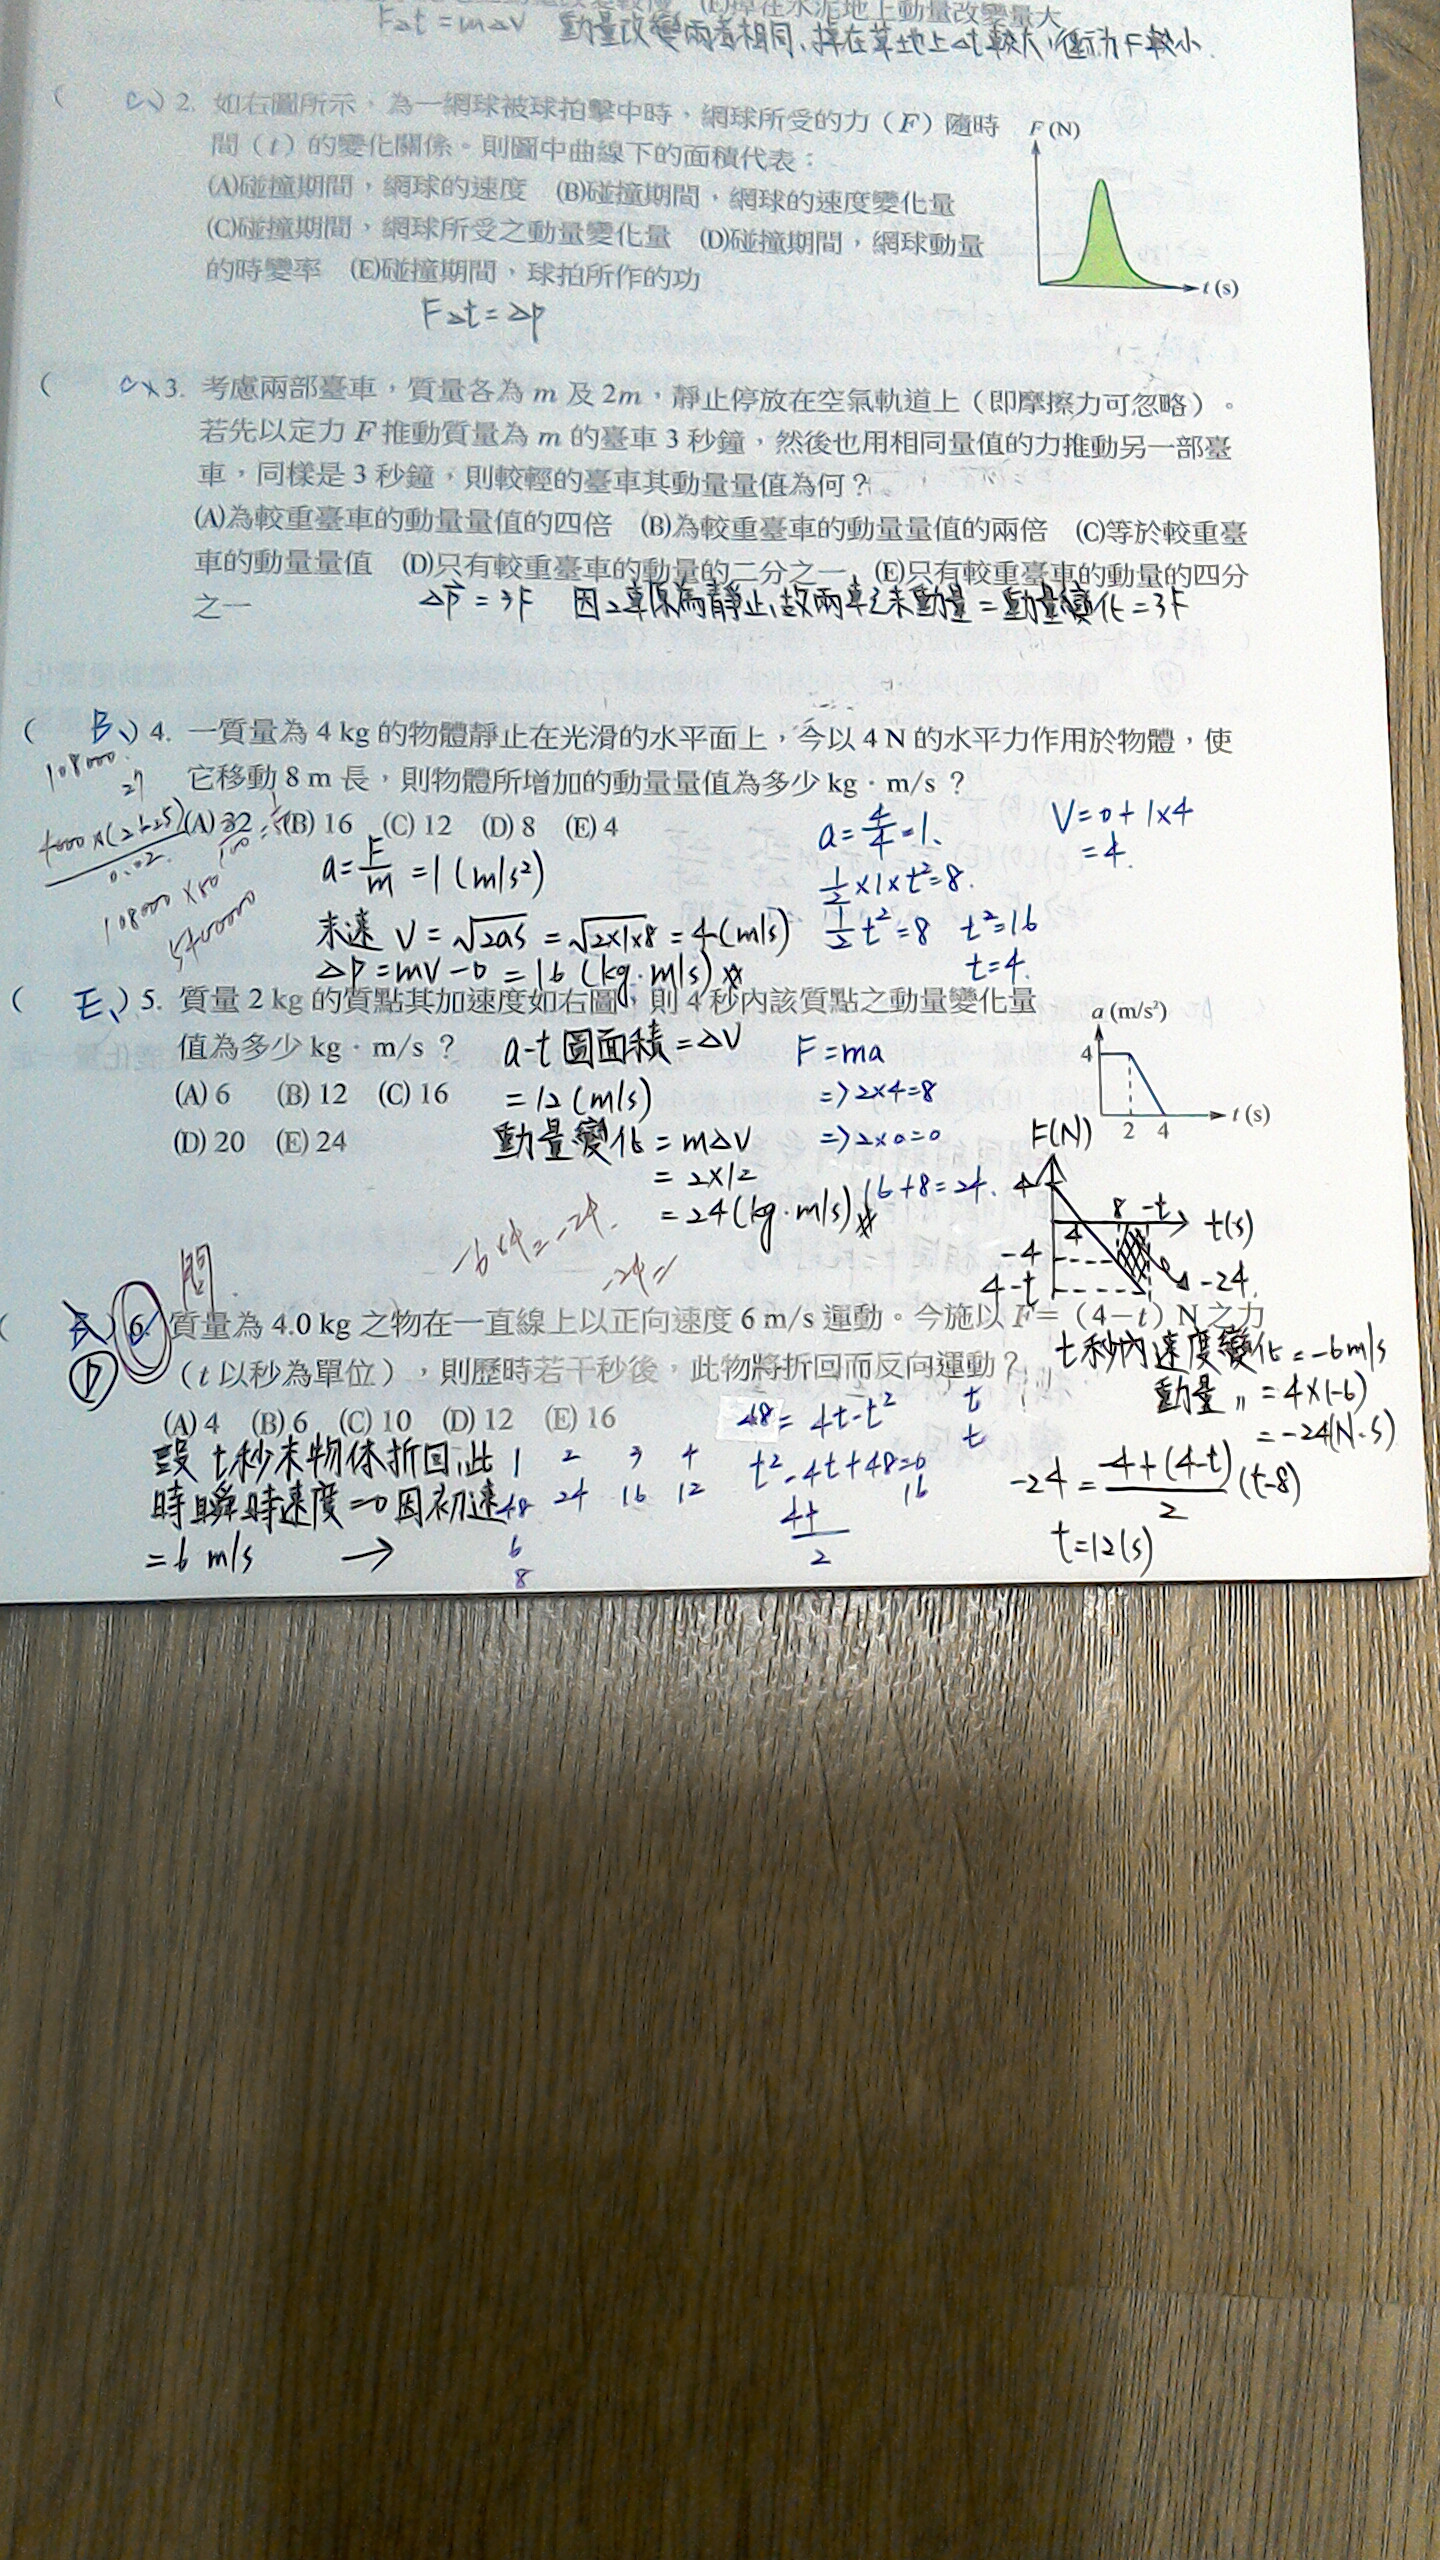 (E)掉在水泥地上動量改變量大
F△t = m△V 動量改變兩者相同、掉在草地上△t較大,衝力F較小.
( C、) 2. 如右圖所示,為一網球被球拍擊中時,網球所受的力(F)隨時
間(t)的變化關係。則圖中曲線下的面積代表:
(A)碰撞期間,網球的速度 (B)碰撞期間,網球的速度變化量
(C)碰撞期間,網球所受之動量變化量 (D)碰撞期間,網球動量
的時變率 (E)碰撞期間,球拍所作的功
F (N)
t (s)
F△t = △p
( C、) 3. 考慮兩部臺車,質量各為 m 及 2m,靜止停放在空氣軌道上(即摩擦力可忽略)。
若先以定力 F 推動質量為 m 的臺車 3 秒鐘,然後也用相同量值的力推動另一部臺
車,同樣是 3 秒鐘,則較輕的臺車其動量量值為何?
(A)為較重臺車的動量量值的四倍 (B)為較重臺車的動量量值的兩倍 (C)等於較重臺
車的動量量值 (D)只有較重臺車的動量的二分之一 (E)只有較重臺車的動量的四分
之一
△p = 3F 因2車原為靜止,故兩車之末動量=動量變化=3F
( B、) 4. 一質量為 4 kg 的物體靜止在光滑的水平面上,今以 4 N 的水平力作用於物體,使
它移動 8 m 長,則物體所增加的動量量值為多少 kg · m/s?
(A) 32 (B) 16 (C) 12 (D) 8 (E) 4
108000
27
4000×(2+25)
0.02
108000 × 50
5400000
a = F/m = 1 (m/s²)
末速 V = √2aS = √2×1×8 = 4 (m/s)
△P = mV - 0 = 16 (kg·m/s)
a = 4/4 = 1、
1/2 ×1× t² = 8.
1/2 t² = 8 t² = 16
t = 4.
V = 0 + 1×4
= 4.
( E、) 5. 質量 2 kg 的質點其加速度如右圖,則 4 秒內該質點之動量變化量
值為多少 kg · m/s?
(A) 6 (B) 12 (C) 16
(D) 20 (E) 24
a (m/s²)
4
2 4
t (s)
a-t 圖面積 = △V
= 12 (m/s)
動量變化 = m△V
= 2×12
= 24 (kg·m/s)
F = ma
=> 2×4 = 8
=> 2×0 = 0
16 + 8 = 24.
-6×4 = -24.
-24 =
F(N)
4
4
8
t
t(s)
-4
4-t
-24
問
( D ) 6. 質量為 4.0 kg 之物在一直線上以正向速度 6 m/s 運動。今施以 F = (4-t) N 之力
(t 以秒為單位),則歷時若干秒後,此物將折回而反向運動?
(A) 4 (B) 6 (C) 10 (D) 12 (E) 16
設 t秒末物体折回,此
時瞬時速度=0因初速
= 6 m/s →
1 2 3 4
48 24 16 12
6
8
48 = 4t - t²
t² - 4t + 48 = 0
16
4±
2
t
t
t秒內速度變化 = -6 m/s
動量 〃 = 4×(-6)
= -24(N·s)
-24 = -4+(4-t)/2 (t-8)
t = 12(s)